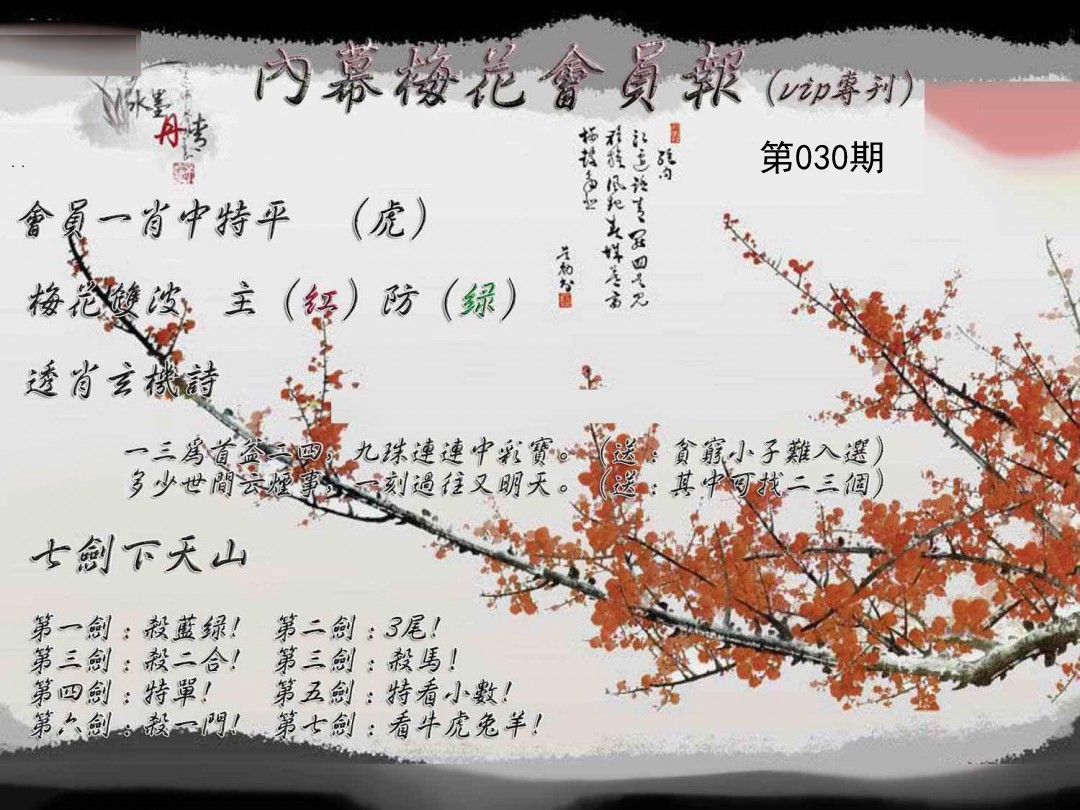 內幕梅花會員報（vip專刊）
水墨
丹青
第030期
會員一肖中特平 （虎）
梅花雙波 主（红）防（绿）
透肖玄機詩
一三爲首益二四，九珠連連中彩寶。（送：貧窮小子難入選）
多少世間云煙事，一刻過往又明天。（送：其中可找二三個）
七劍下天山
第一劍：殺藍绿！ 第二劍：3尾！
第三劍：殺二合！ 第三劍：殺馬！
第四劍：特單！ 第五劍：特看小數！
第六劍：殺一門！ 第七劍：看牛虎兔羊！